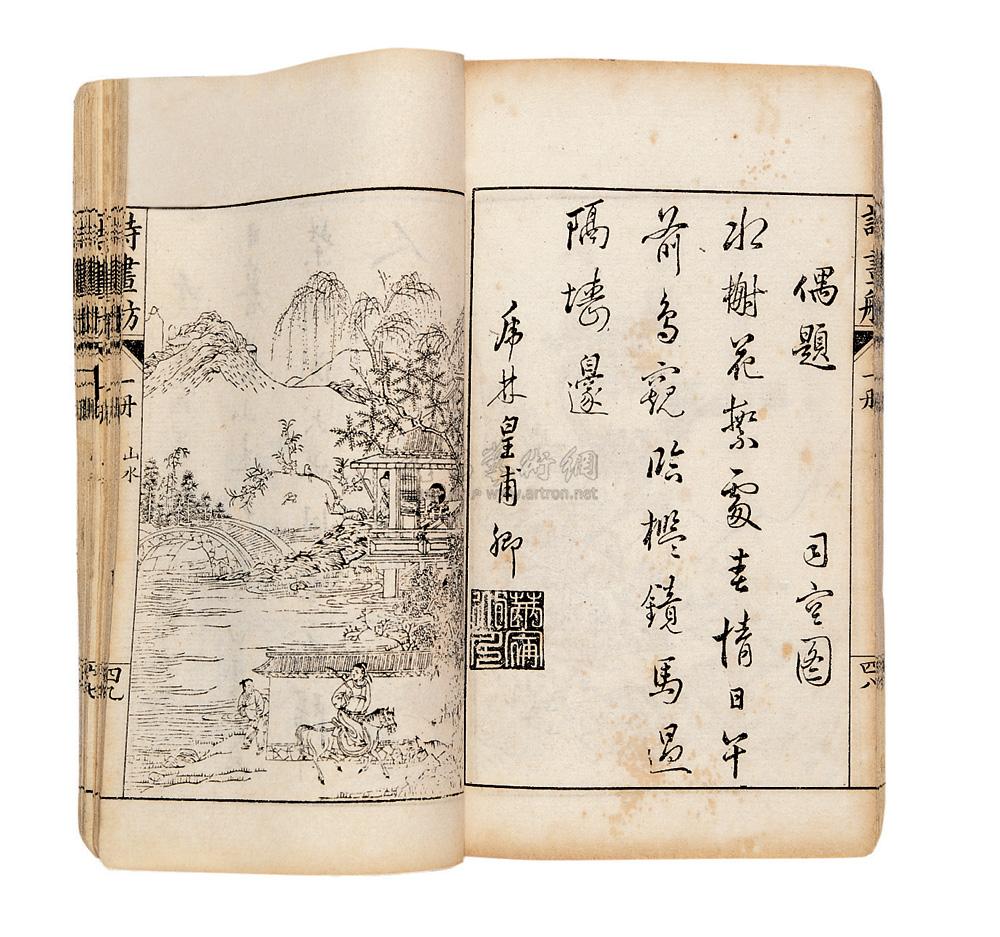 偶題 司空图
水榭花繁處春情日午
前鳥窺臨檻鏡馬過
隔墻邊
虎林皇甫卿
詩畫舫 一册 四八
詩畫舫 一册 山水 四九
藝術網
www.artron.net